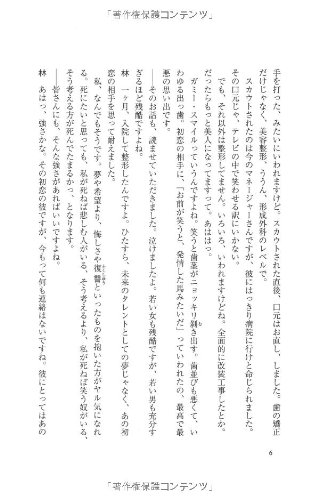 「著作権保護コンテンツ」
手を打った、みたいにいわれますけど。スカウトされた直後、口元はお直し、しました。歯の矯正
だけじゃなく、美容整形、ううん、形成外科のレベルで。
スカウトされたのは今のマネージャーさんですが、彼にはっきり病院に行けと命じられました。
その口元じゃ、テレビの中で笑わせる訳にいかない。
でも、それ以外は整形してません。いろいろ、いわれますけどね、全面的に改装工事したとか。
だったらもっと美人になってますって。あははっ。
ガミー・スマイルっていうんですよね。笑うと歯茎がニョッキリ剥き出す。歯並びも悪くて、い
わゆる出っ歯。初恋の相手に、「お前が笑うと、発情した馬みたいだ」っていわれたの、最高で最
悪の思い出です。
――そのお話も、読ませていただきました。泣けましたよ。若い女も残酷ですが、若い男も充分す
ぎるほど残酷ですよね。
林 一ヶ月、入院して整形したんですよ。ひたすら、未来のタレントとしての夢じゃなく、あの初
恋の相手を思って耐えました。
私、なんでもそうです。夢や希望より、悔しさや復讐といったものを抱いた方がヤル気になれ
る。死にたいと思っても、私が死ねば悲しむ人がいる、そう考えるより、私が死ねば笑う奴がいる、
そう考える方が死んでたまるか、となります。
――皆さんにも、そんな強さがあればいいですよね。
林 あはっ、強さかな。その初恋の彼ですが、今もって何も連絡はないですね。彼にとってはあの
6
「著作権保護コンテンツ」